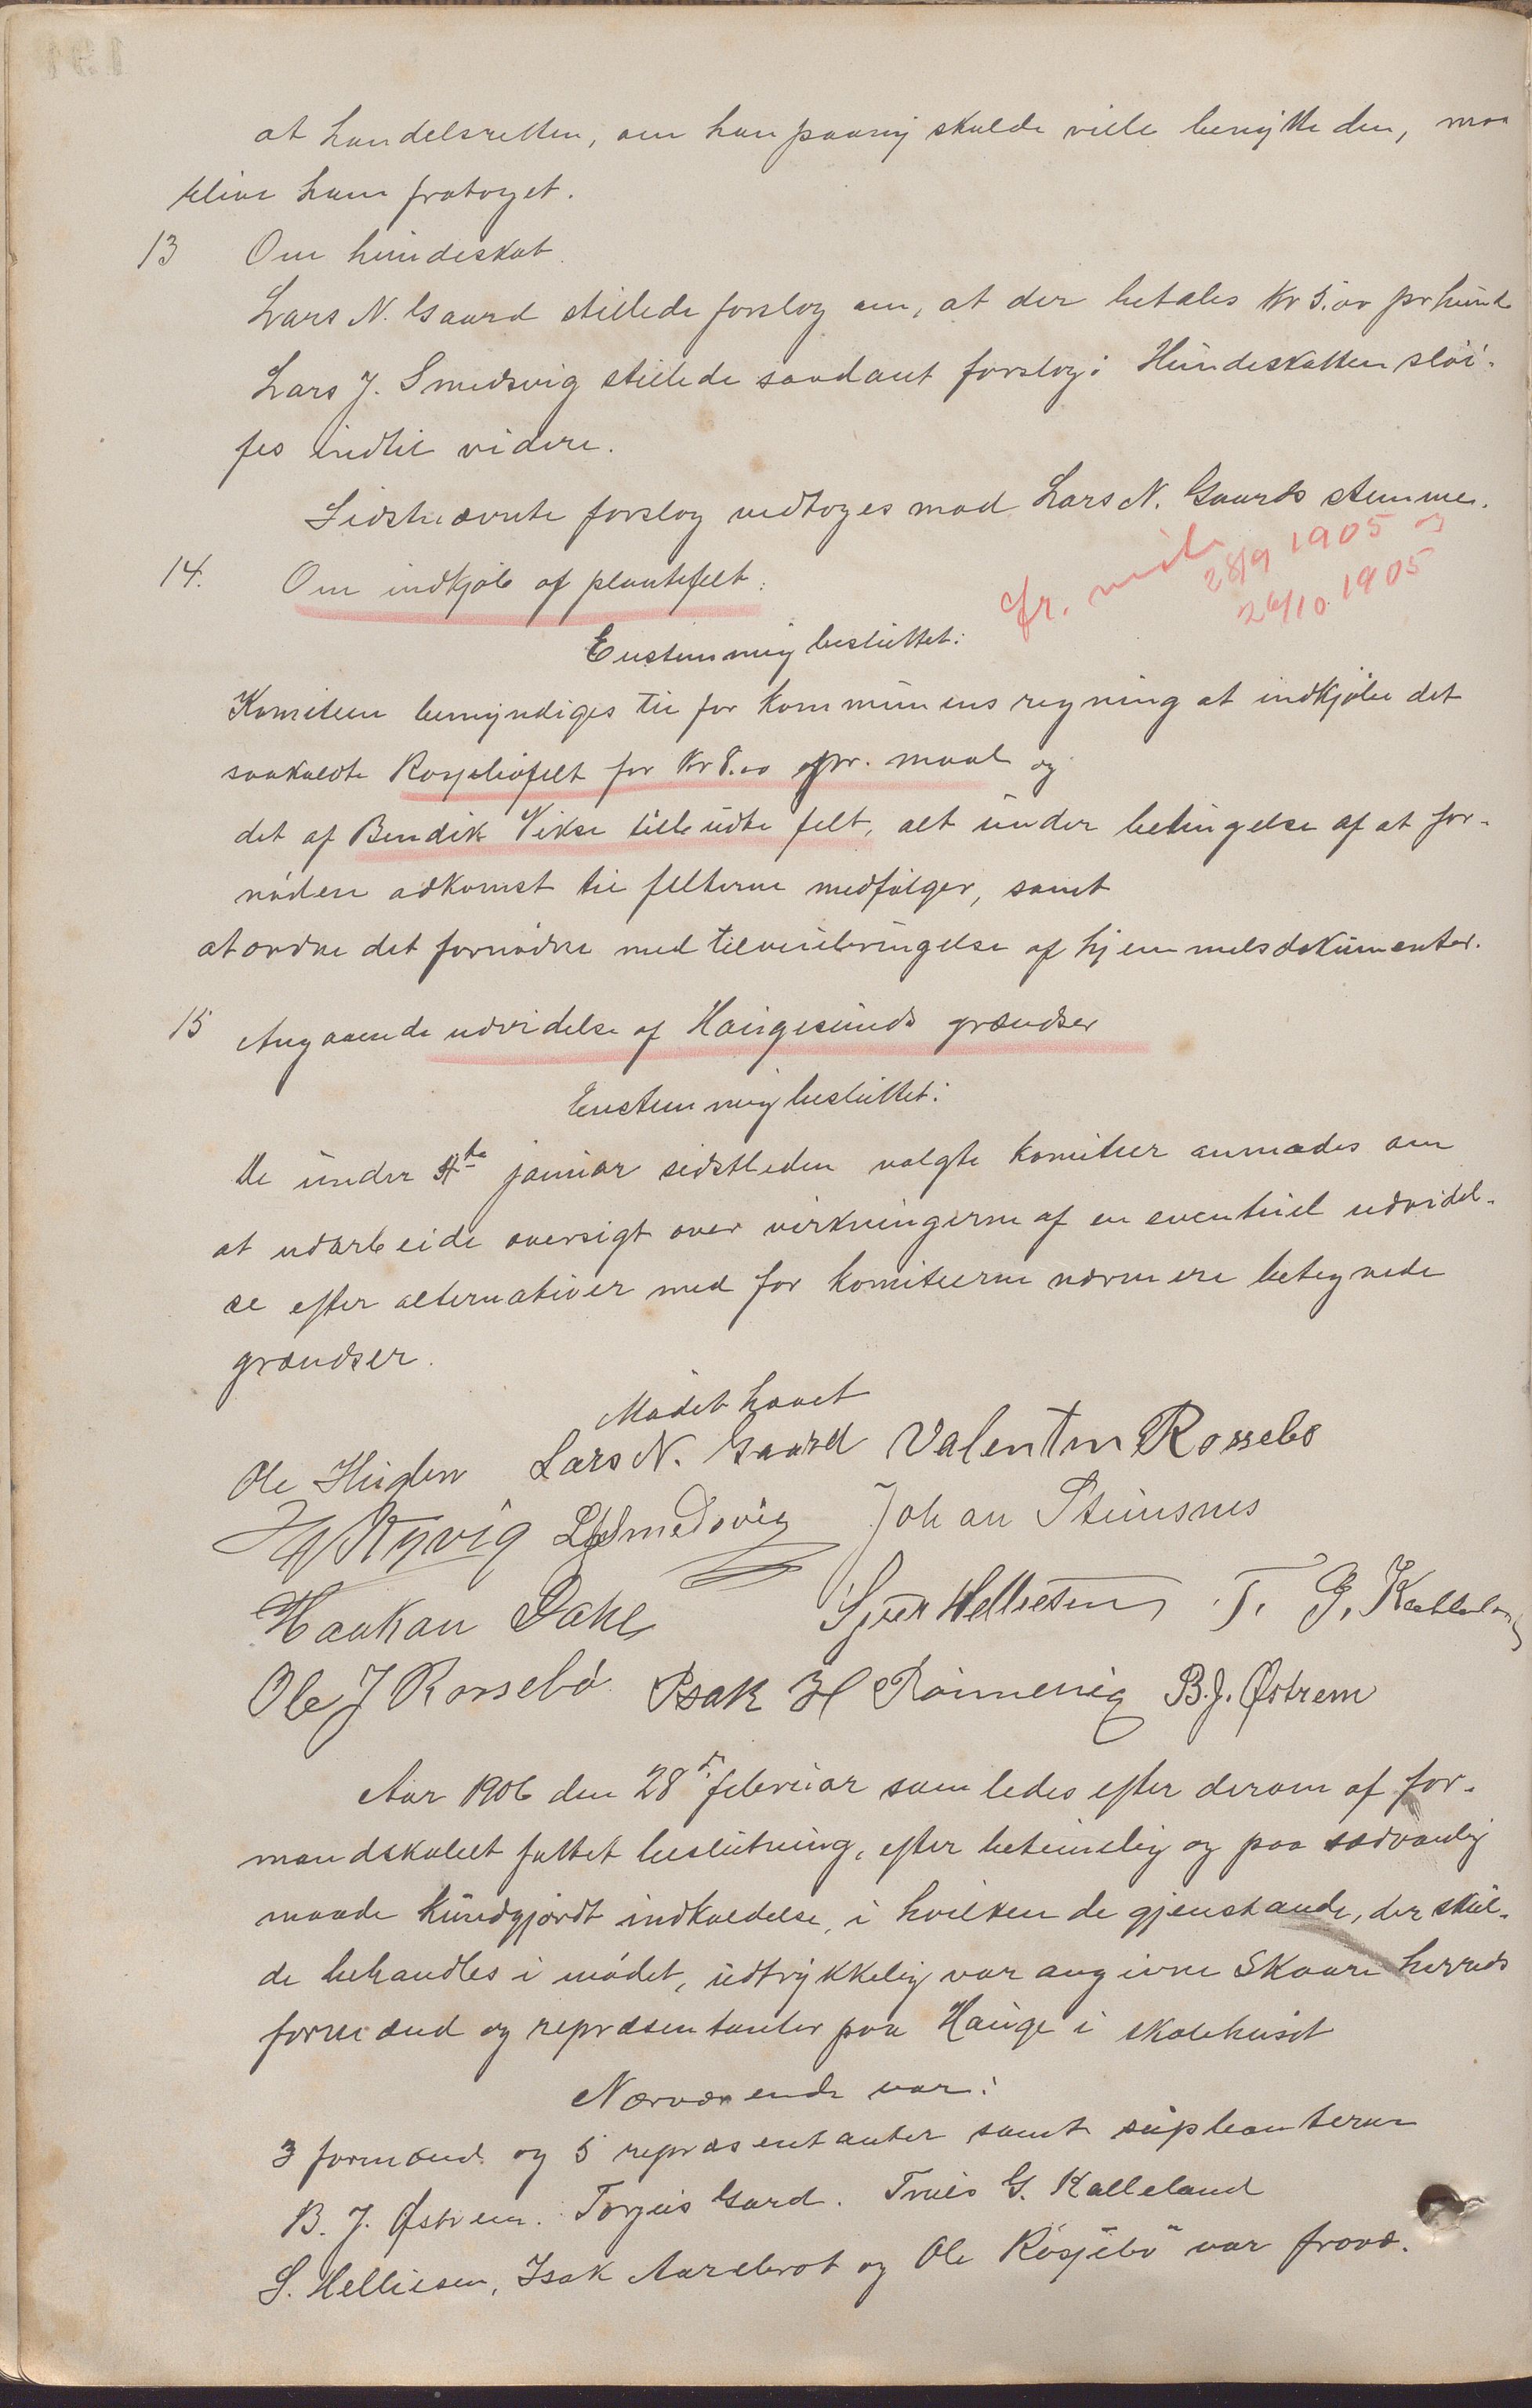 at handelsretten, om han paany skulde ville benytte den, maa
blive ham fratoget.
13 Om hundeskat.
Lars N. Gaard stillede forslag om, at der betales Kr 5.00 pr hund
Lars J. Smedsvig stillede saadant forslag: Hundeskatten sløi-
fes indtil videre.
Sidstnævnte forslag vedtoges mod Lars N. Gaards stemme.
14. Om indkjøb af plantefelt:
Cfr. møde 28/9 1905 og
26/10 1905
Enstemmig besluttet:
Komiteen bemyndiges til for kommunens regning at indkjøbe det
saakaldte Rossebøfelt for Kr 8.00 pr. maal og
det af Bendik Vikse tilbudte felt, alt under betingelse af at for-
nøden adkomst til felterne medfølger, samt
at ordne det fornødne med tilveiebringelse af hjemmelsdokumenter.
15 Angaaende udvidelse af Haugesunds grændser
Enstemmig besluttet:
De under 4de januar sidstleden valgte komiteer anmodes om
at udarbeide oversigt over virkningerne af en eventuel udvidel-
se efter alternativer med for komiteerne nærmere betegnede
grændser.
Mødet hævet
Ole Huglen Lars N. Gaard Valentin Rossebø
Kyvig LJSmedsvig Johan Stensnes
Haakan Dahl Sjur Helliesen T. G. Kalleland
Ole J Rossebø Isak H Rönnevig B.J. Østrem
Aar 1906 den 28de februar samledes efter derom af for-
mandskabet fattet beslutning, efter betimelig og paa sædvanlig
maade kundgjordt indkaldelse, i hvilken de gjenstande, der skul-
de behandles i mødet, udtrykkelig var angivne Skaare herreds
formænd og repræsentanter paa Hauge i skolehuset
Nærværende var:
3 formænd og 5 repræsentanter samt supleanterne
B. J. Østrem. Torgeis Gard. Truls G. Kalleland
S. Helliesen, Isak Aarebrot og Ole Rossebø var fravæ-